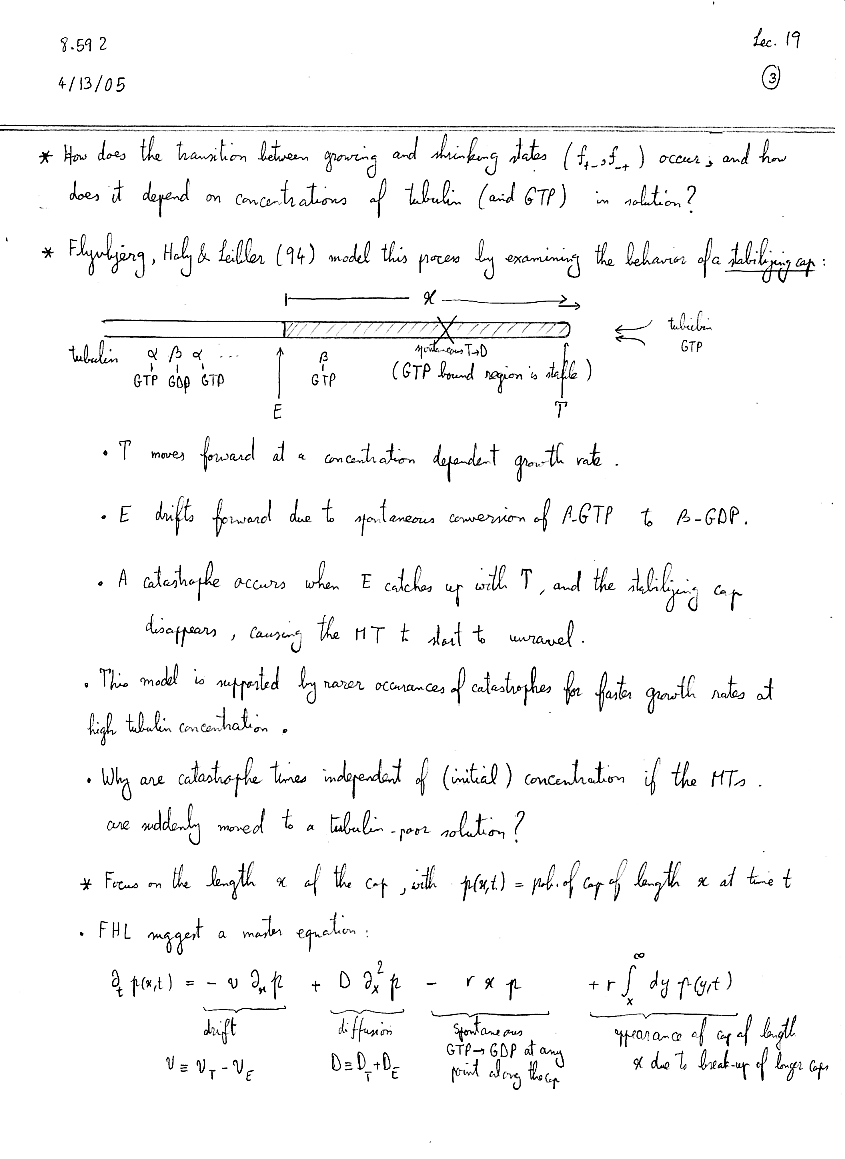 8.592
Lec. 19
4/13/05
3
* How does the transition between growing and shrinking states (f+-, f-+) occur, and how
does it depend on concentrations of tubulin (and GTP) in solution?
* Flyvbjerg, Holy & Leibler (94) model this process by examining the behavior of a stabilizing cap :
x
tubulin
GTP
tubulin α β α ...
GTP GDP GTP
β
GTP
spontaneous T→D
(GTP bound region is stable)
E
T
• T moves forward at a concentration dependent growth rate.
• E drifts forward due to spontaneous conversion of β-GTP to β-GDP.
• A catastrophe occurs when E catches up with T, and the stabilizing cap
disappears, causing the MT to start to unravel.
• This model is supported by rarer occurances of catastrophes for faster growth rates at
high tubulin concentration.
• Why are catastrophe times independent of (initial) concentration if the MTs.
are suddenly moved to a tubulin-poor solution?
* Focus on the length x of the cap, with p(x,t) = prob. of cap of length x at time t
• FHL suggest a master equation:
∂t p(x,t) = - v ∂x p + D ∂x² p - r x p + r ∫x^∞ dy p(y,t)
drift
v ≡ vT - vE
diffusion
D ≡ DT + DE
spontaneous
GTP→GDP at any
point along the cap
appearance of cap of length
x due to break-up of longer caps